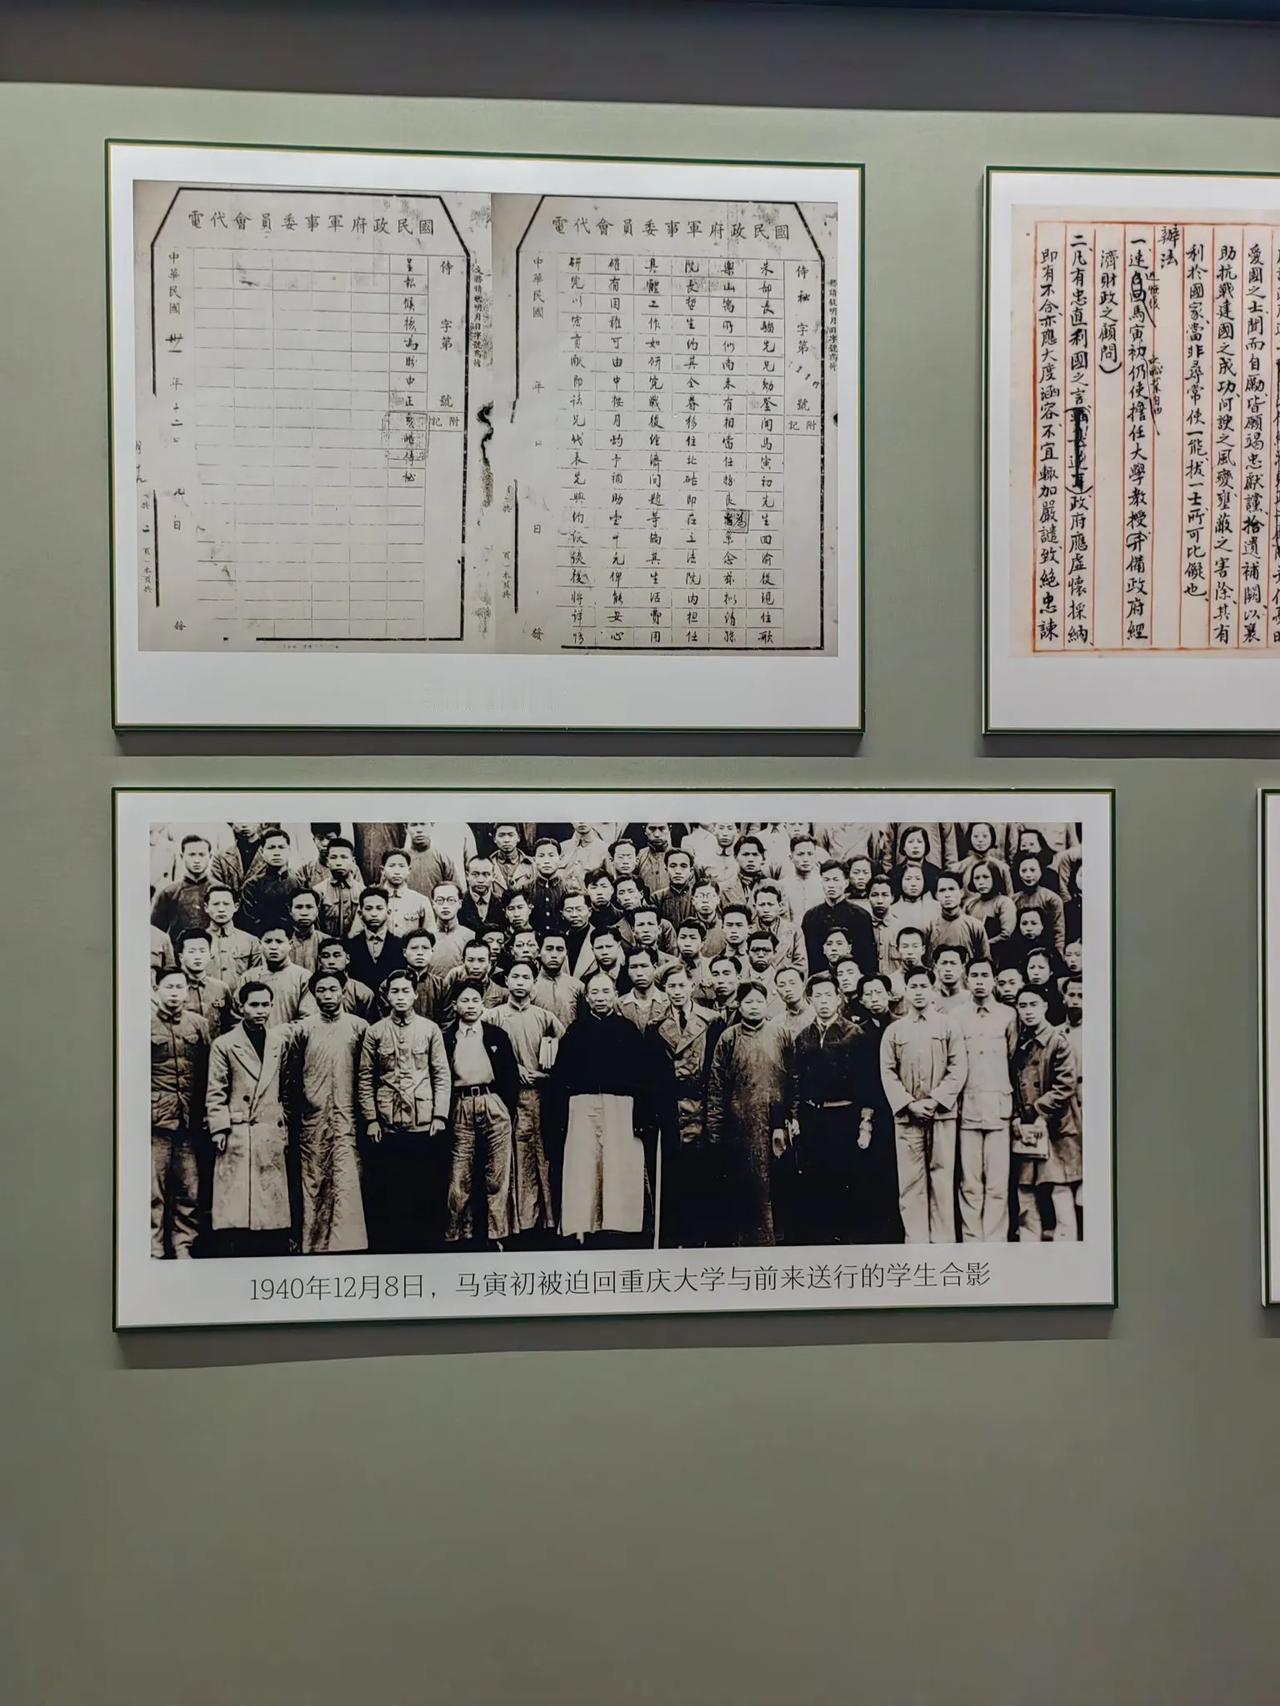 國民政府軍事委員會代電
侍秘字第
號
附記
朱部長騮先兄勛鑒聞馬寅初先生回渝後現住歌
樂山寓所們尚未有相當任務良為系念茲擬請孫
院長哲生約其全眷移住北碚即在立法院內担任
具體工作如研究戰後經濟問題等倘其生活費用
確有困難可由中樞月酌予補助壹千元俾能安心
研究以宏貢献即請兄代表先與約談後將詳情
中華民國 年 日 發
國民政府軍事委員會代電
侍 字第 號
附記
呈報候核為盼中正亥皓侍秘
中華民國卅一年十二 九日 發
愛國之士聞而自勵皆願竭忠獻讜拾遺補闕以襄
助抗戰建國之成功河諛之風變壅蔽之害除其有
利於國家當非尋常使一能拔一士所可比儗也
辦法
一速 馬寅初仍使擔任大學教授(并備政府經
濟財政之顧問)
二凡有忠直利國之言 政府應虛懷採納
即有不合亦應大度涵容不宜輒加嚴譴致絕忠諫
1940年12月8日，马寅初被迫回重庆大学与前来送行的学生合影